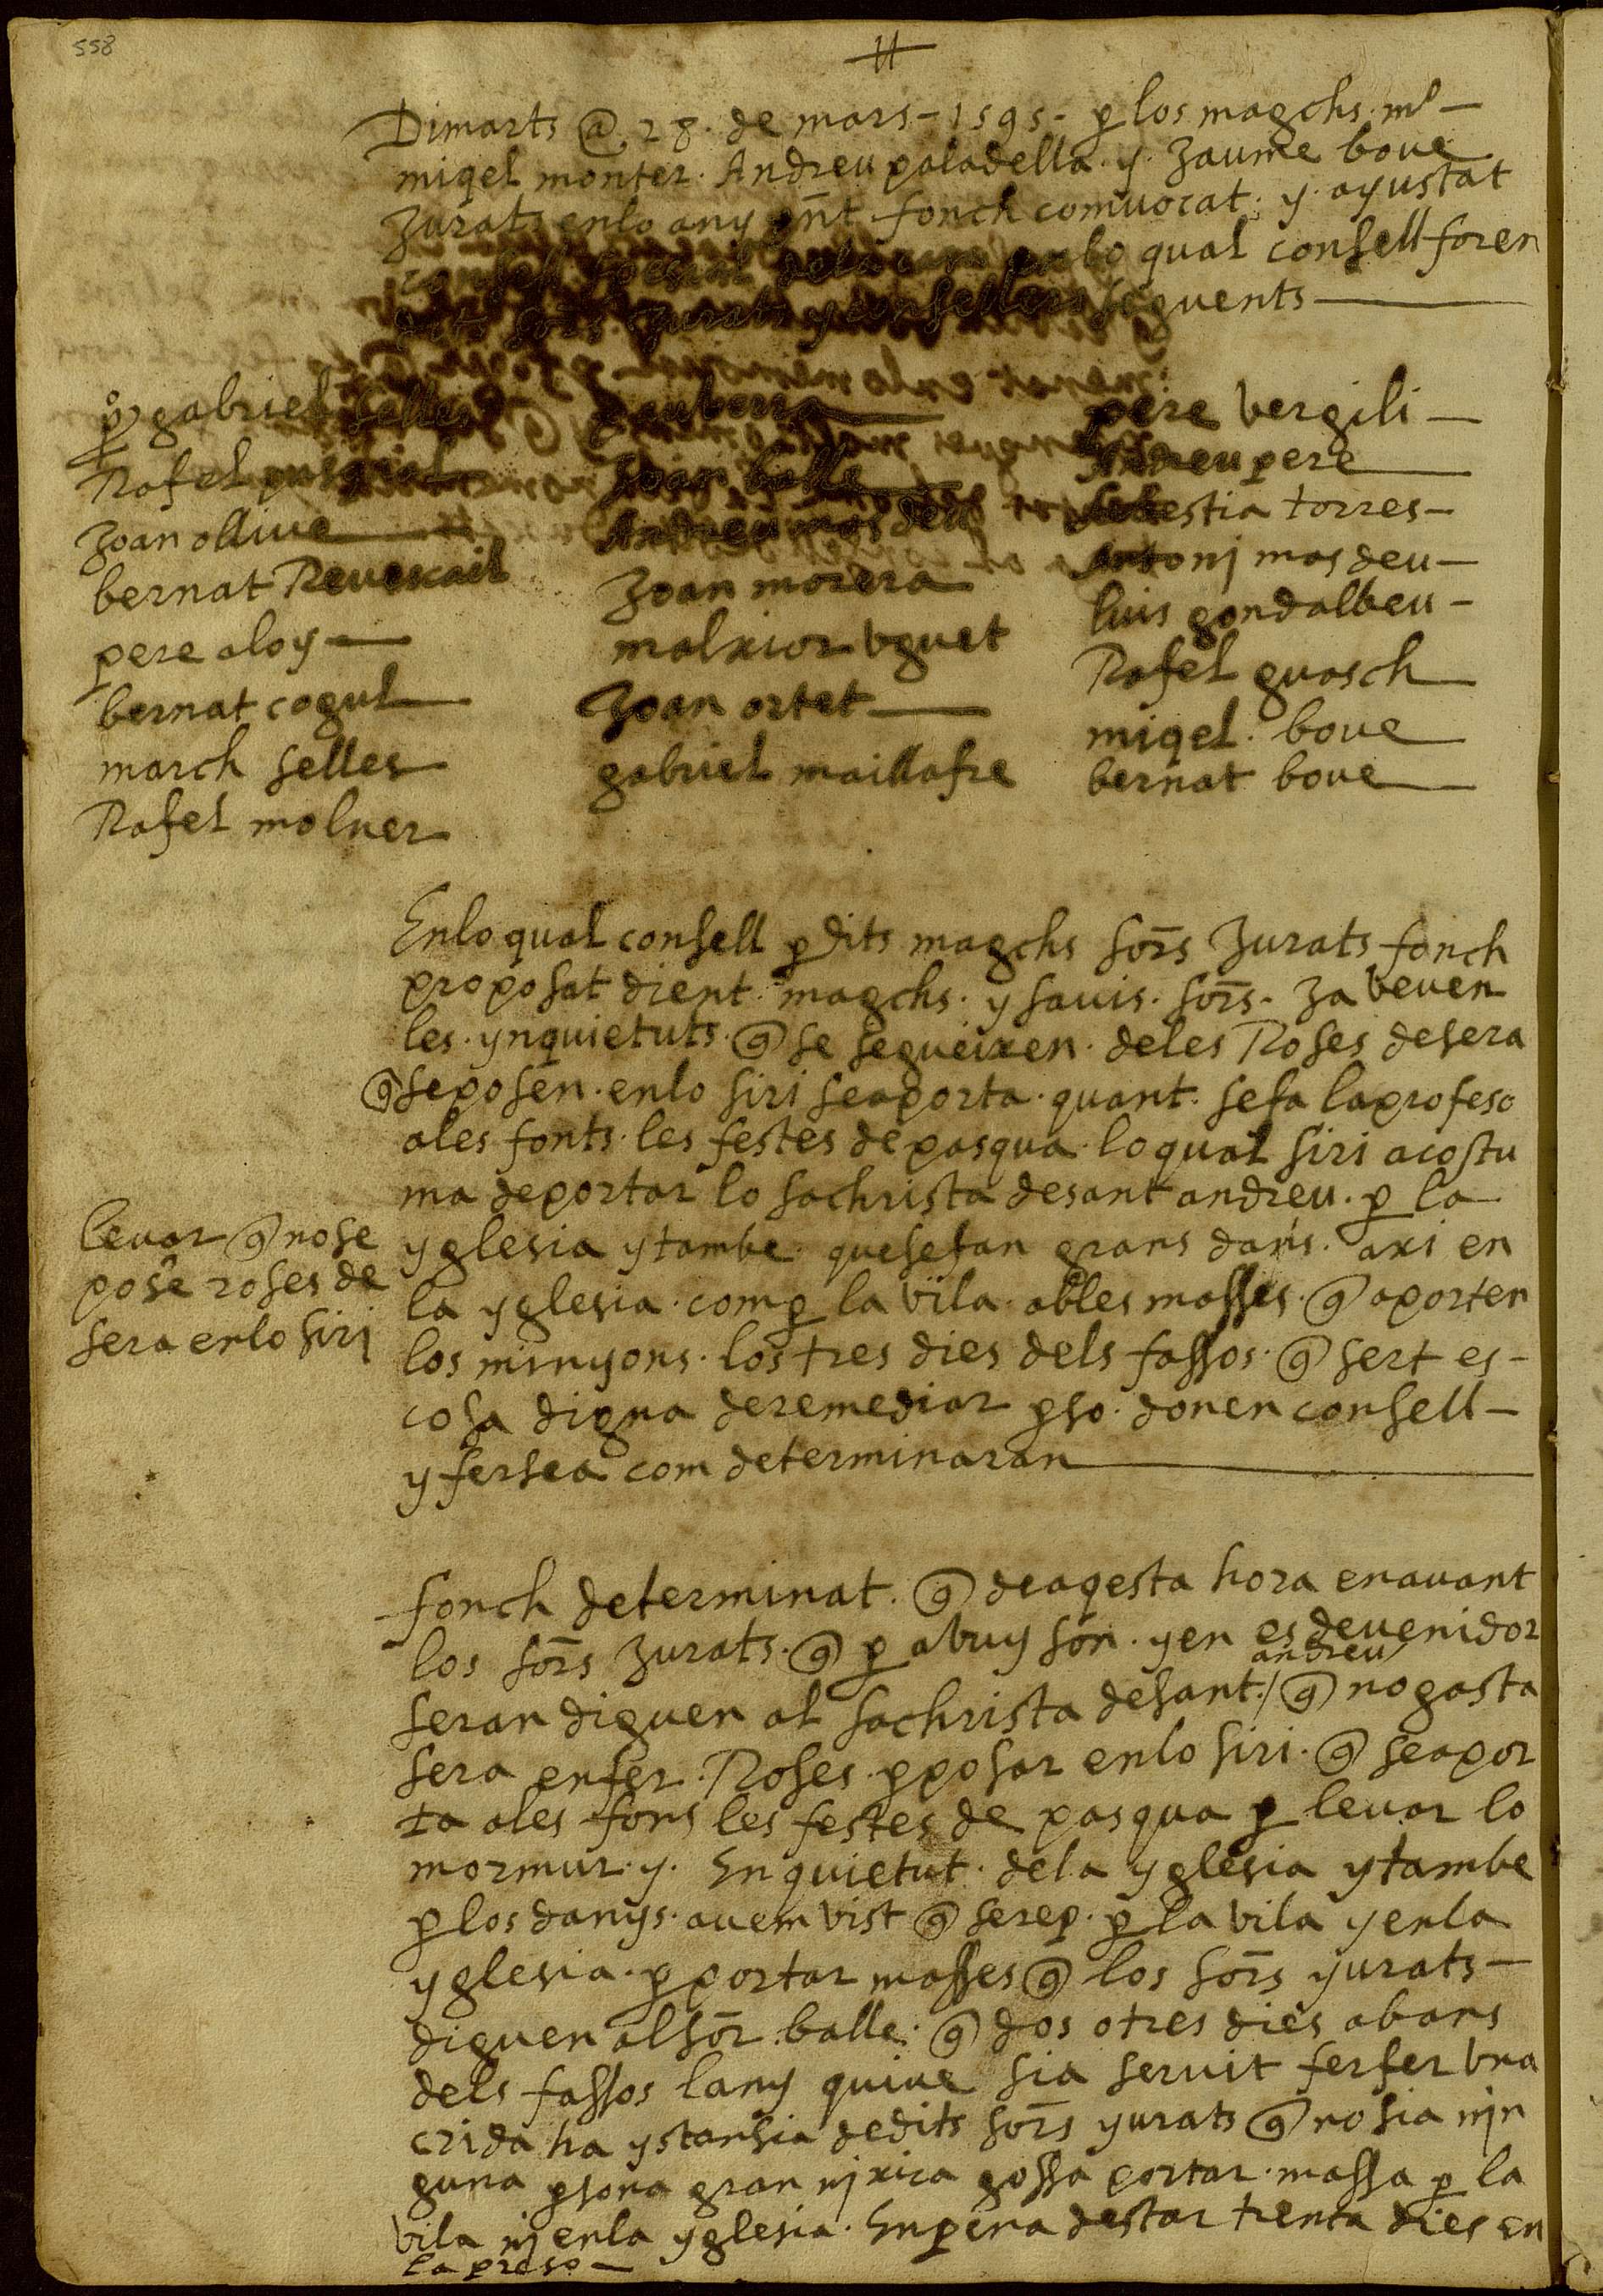 558
Dimarts @ 28 · de mars - 1595 - p los magchs · ms -
miqel monter · Andreu paladella · y · Jaume boue
Jurats enlo any pñt fonch comuocat · y · ayustat
consell spesial dela enlo qual consell foren
dits sors Jurats y consellers seguents
po gabriel selles
Rafel pusgiol
Joan olliue
bernat Reuescail
pere aloy
bernat cogul
march selles
Rafel molner
Joan balle
Andreu mas deu
Joan morera
malxior vguet
Joan ortet
gabriel maillafre
pere vergili
Andreu pere
sebestia torres
Antonj mas deu
luis gondalbeu
Rafel guasch
miqel · boue
bernat boue
Enlo qual consell p dits magchs sors Jurats fonch
proposat dient · magchs · y sauis · sors · Ja veuen
les · ynquietuts · q se segueixen · deles Roses desera
q seposen · enlo siri seaporta · quant · sefa laprofeso
ales fonts · les festes de pasqua · lo qual siri acostu
ma deportar lo sachrista desant andreu · p la
yglesia ytambe · quesefan grans dans · axi en
la yglesia · com p la vila · ables masses · q aporten
los minyons · los tres dies dels fassos · q sert es -
cosa digna deremediar pso · donen consell -
y fersea com determinaran
leuar q nose
pose roses de
sera enlo siri
fonch determinat · q deaqesta hora enauant
los sors Jurats · q p abuy son · yen es deuenidor
seran diguen al sachrista desant · / andreu / q nogasta
sera enfer · Roses · p posar enlo siri · q seapor
ta ales fons les festes de pasqua p leuar lo
mormur · y · Enquietut · dela yglesia ytambe
p los danys · auem vist q serep · p la vila yenla
yglesia · p portar masses q los sors yurats -
diguen alsor · balle · q dos otres dies abans
dels fassos lany quiue sia seruit ferfer vna
crida ha ystansia dedits sors yurats q no sia nin
guna psona gran nj xica gossa portar · massa p la
vila nj enla yglesia · Enpena destar trenta dies en
la preso -